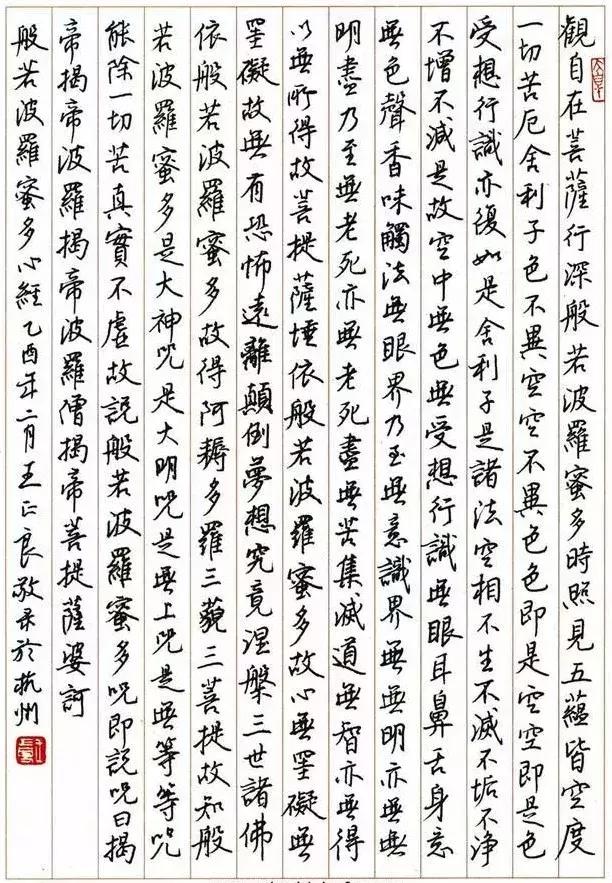 觀自在菩薩行深般若波羅蜜多時照見五蘊皆空度
一切苦厄舍利子色不異空空不異色色即是空空即是色
受想行識亦復如是舍利子是諸法空相不生不滅不垢不淨
不增不減是故空中無色無受想行識無眼耳鼻舌身意
無色聲香味觸法無眼界乃至無意識界無無明亦無無
明盡乃至無老死亦無老死盡無苦集滅道無智亦無得
以無所得故菩提薩埵依般若波羅蜜多故心無罣礙無
罣礙故無有恐怖遠離顛倒夢想究竟涅槃三世諸佛
依般若波羅蜜多故得阿耨多羅三藐三菩提故知般
若波羅蜜多是大神咒是大明咒是無上咒是無等等咒
能除一切苦真實不虛故說般若波羅蜜多咒即說咒曰揭
帝揭帝波羅揭帝波羅僧揭帝菩提薩婆訶
般若波羅蜜多心經 乙酉年二月王正良敬录於杭州